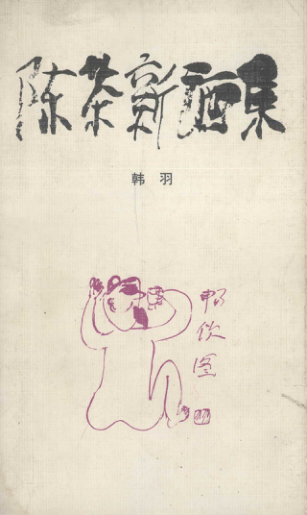 陈茶新酒集
韩羽
畅饮图